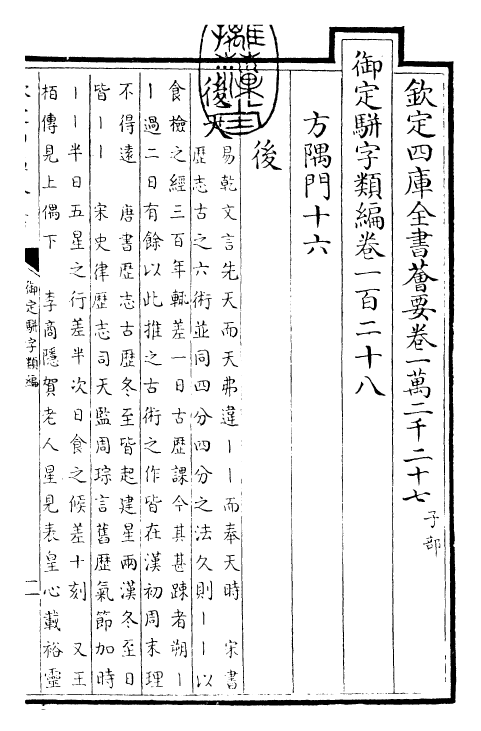 欽定四庫全書薈要卷一萬二千二十七 子部
御定駢字類編卷一百二十八
方隅門十六
後
後天
易乾文言先天而天弗違丨丨而奉天時 宋書
歴志古之六術並同四分四分之法久則丨丨以
食檢之經三百年輒差一日古歴課今其甚踈者朔丨
丨過二日有餘以此推之古術之作皆在漢初周末理
不得遠 唐書歴志古歴冬至皆起建星兩漢冬至日
皆丨丨 宋史律歴志司天監周琮言舊歴氣節加時
丨丨半日五星之行差半次日食之候差十刻 又王
栢傳見上偶下 李商隱賀老人星見表皇心載裕靈
御定駢字類編